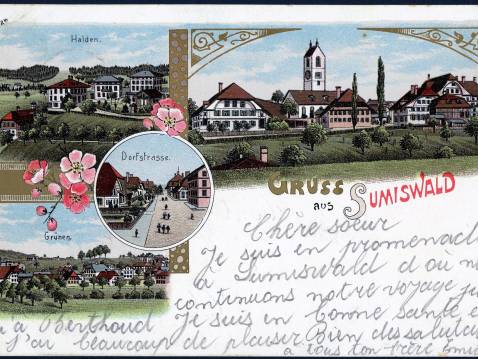 Halden.
Dorfstrasse.
Grünen.
GRUSS
AUS
SUMISWALD
Chère soeur
Je suis en promenad
à Sumiswald d'où n
continuons notre voyage
à Berthoud Je suis en bonne santé e
J'ai beaucoup de plaisir Bien des salut
à tous ton frère